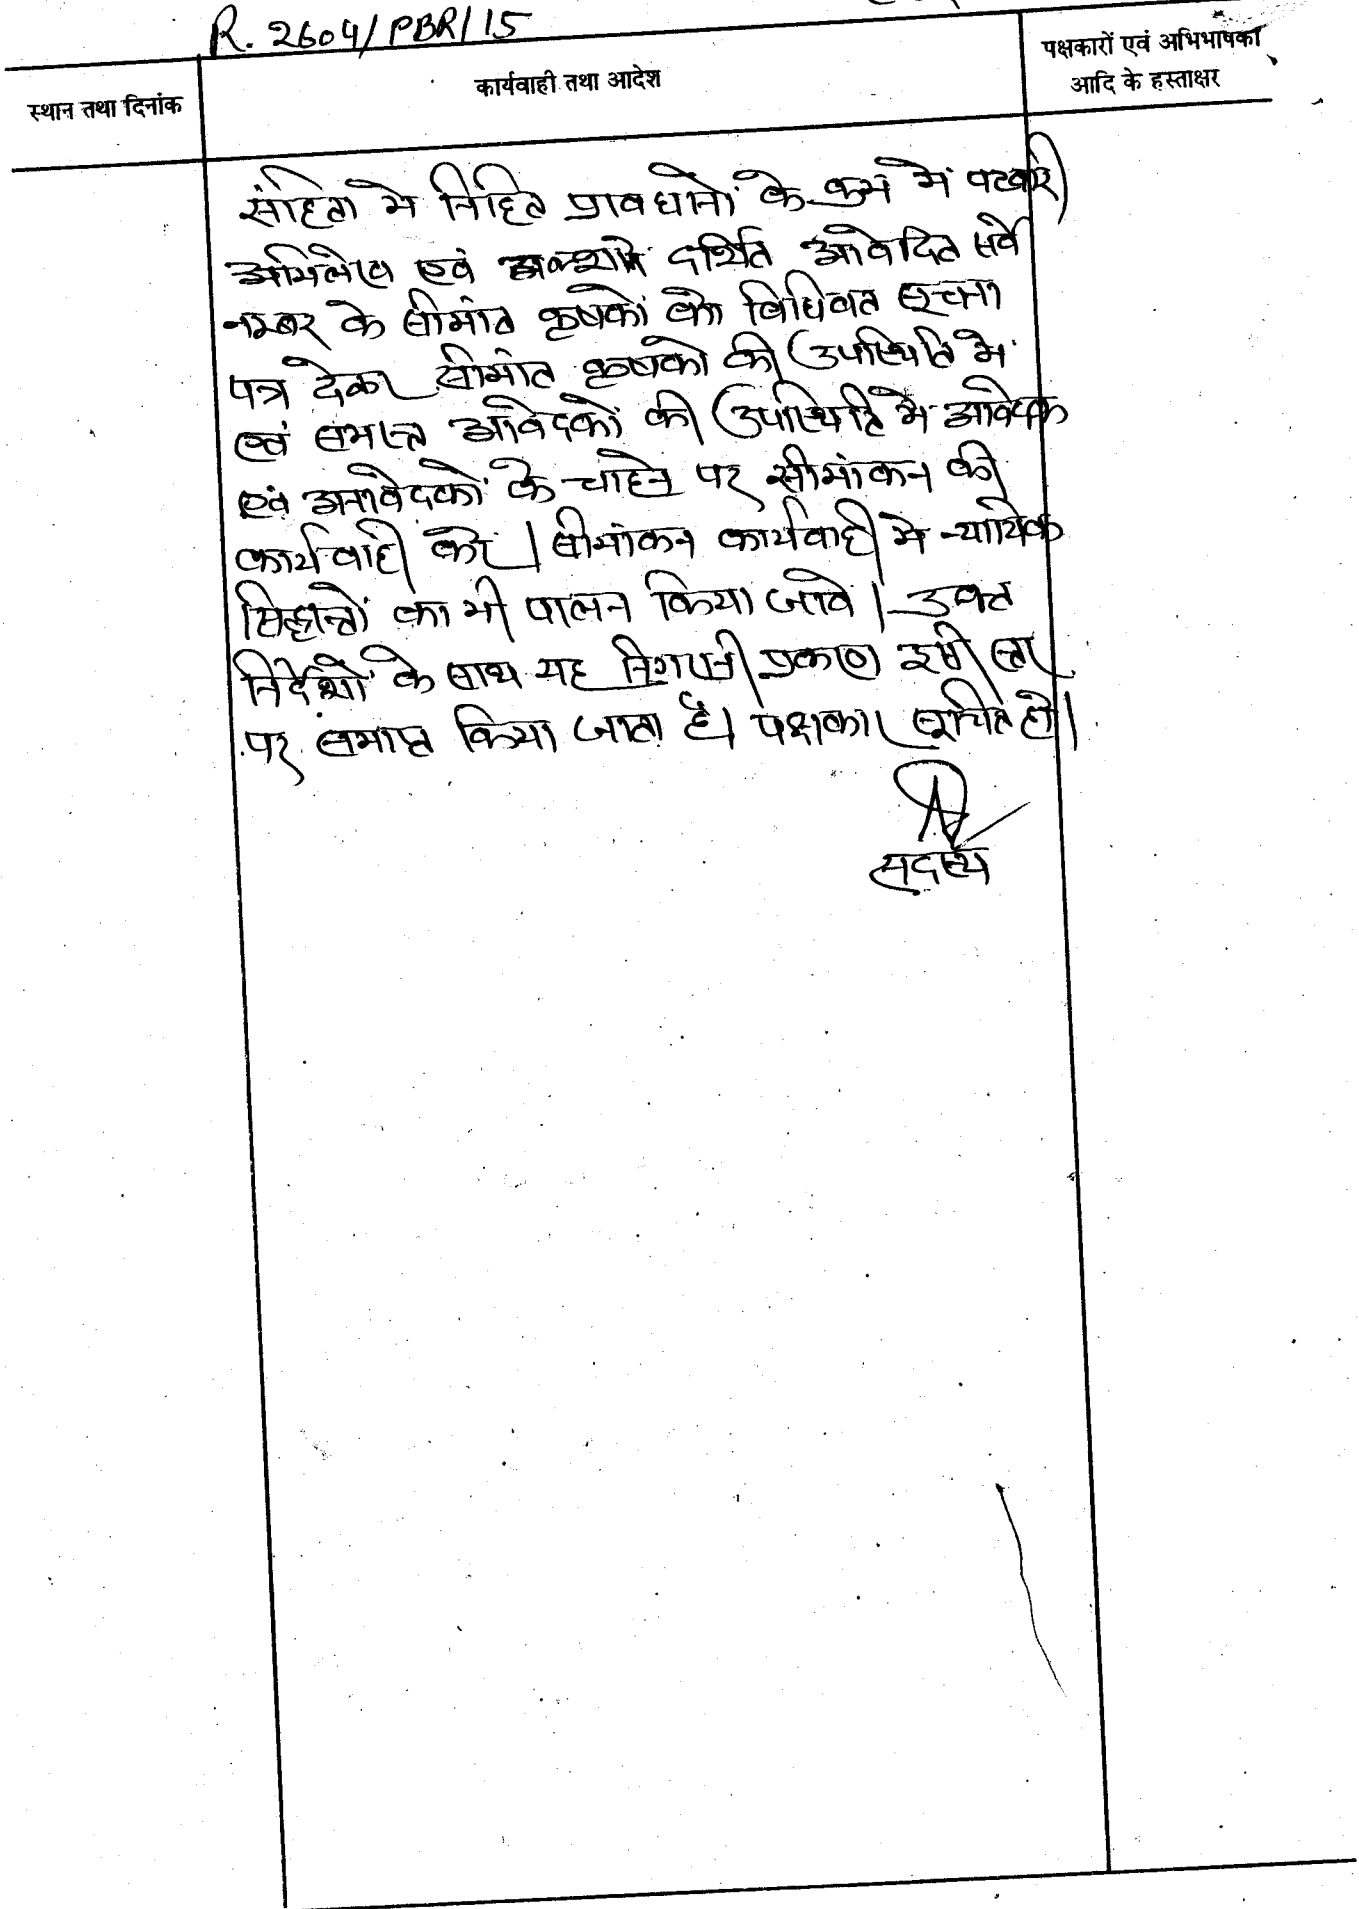 R. 2604/PBR/15
स्थान तथा दिनांक
कार्यवाही तथा आदेश
पक्षकारों एवं अभिभाषकों
आदि के हस्ताक्षर
संहिता मे निहित प्रावधानों के क्रम में पटवारी
अभिलेख एवं दर्शित आवेदित सर्वे
नम्बर के सीमांत कृषकों को विधिवत सूचना
पत्र देकर सीमांत कृषको की उपस्थिति में
एवं समस्त आवेदकों की उपस्थिति मे आवेदक
एवं अनावेदकों के चाहने पर सीमांकन की
कार्यवाही करें। सीमांकन कार्यवाही मे न्यायिक
सिद्धान्तों का भी पालन किया जावे। उक्त
निर्देशों के साथ यह निगरानी प्रकरण इसी स्तर
पर समाप्त किया जाता है। पक्षकार सूचित हों।
सदस्य